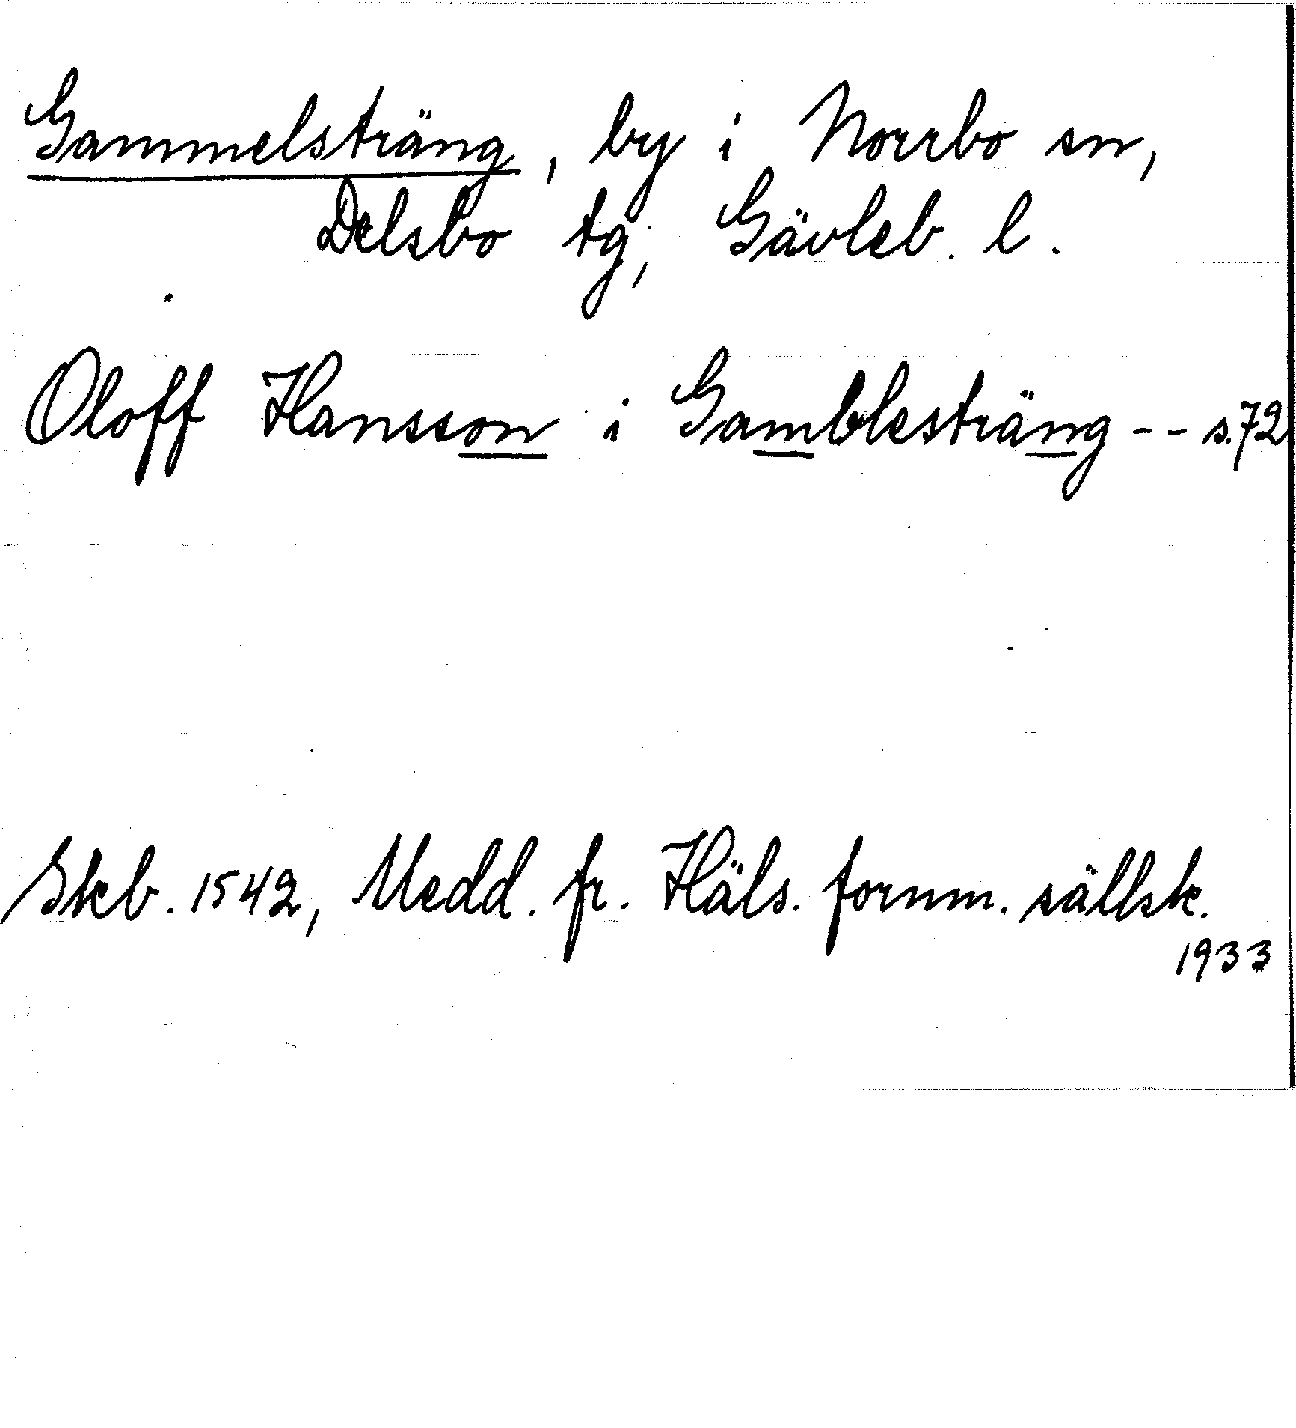 Gammelsträng, by i Norrbo sn,
Delsbo tg, Gävleb. l.
Oloff Hansson i Gamblesträng -- s.72
Skb. 1542, Medd. fr. Häls. fornm. sällsk.
1933